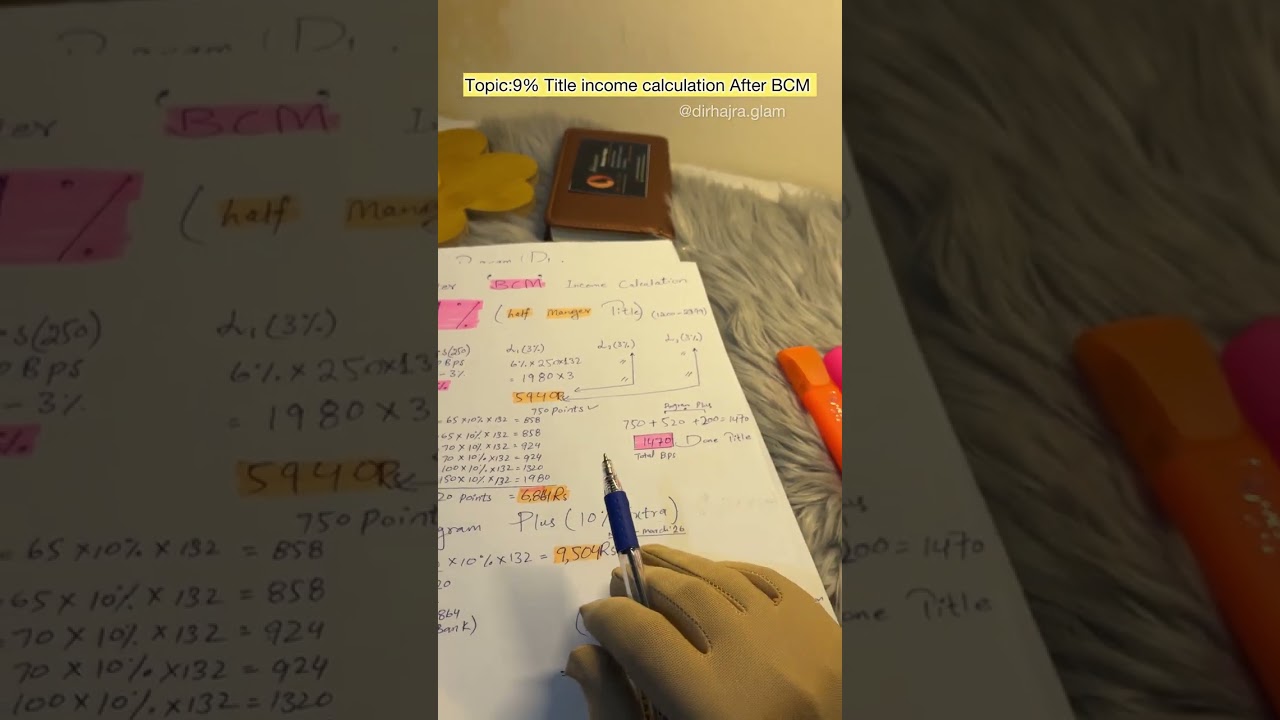 Topic:9% Title income calculation After BCM
@dirhajra.glam
BCM Income Calculation
% (half Manger Title) (1200-2399)
s(250) L1(3%) L2(3%) L3(3%)
Bps 6% x 250x132
- 3% = 1980 x 3
% 5940Rs
750 Points
= 65 x 10% x 132 = 858
65 x 10% x 132 = 858
70 x 10% x 132 = 924
70 x 10% x 132 = 924
100 x 10% x 132 = 1320
150 x 10% x 132 = 1980
20 points = 6,861Rs
Program Plus
750 + 520 + 200 = 1470
1470 Done Title
Total Bps
gram Plus (10% xtra)
march'26
x 10% x 132 = 9,504Rs
20
864
Bank)